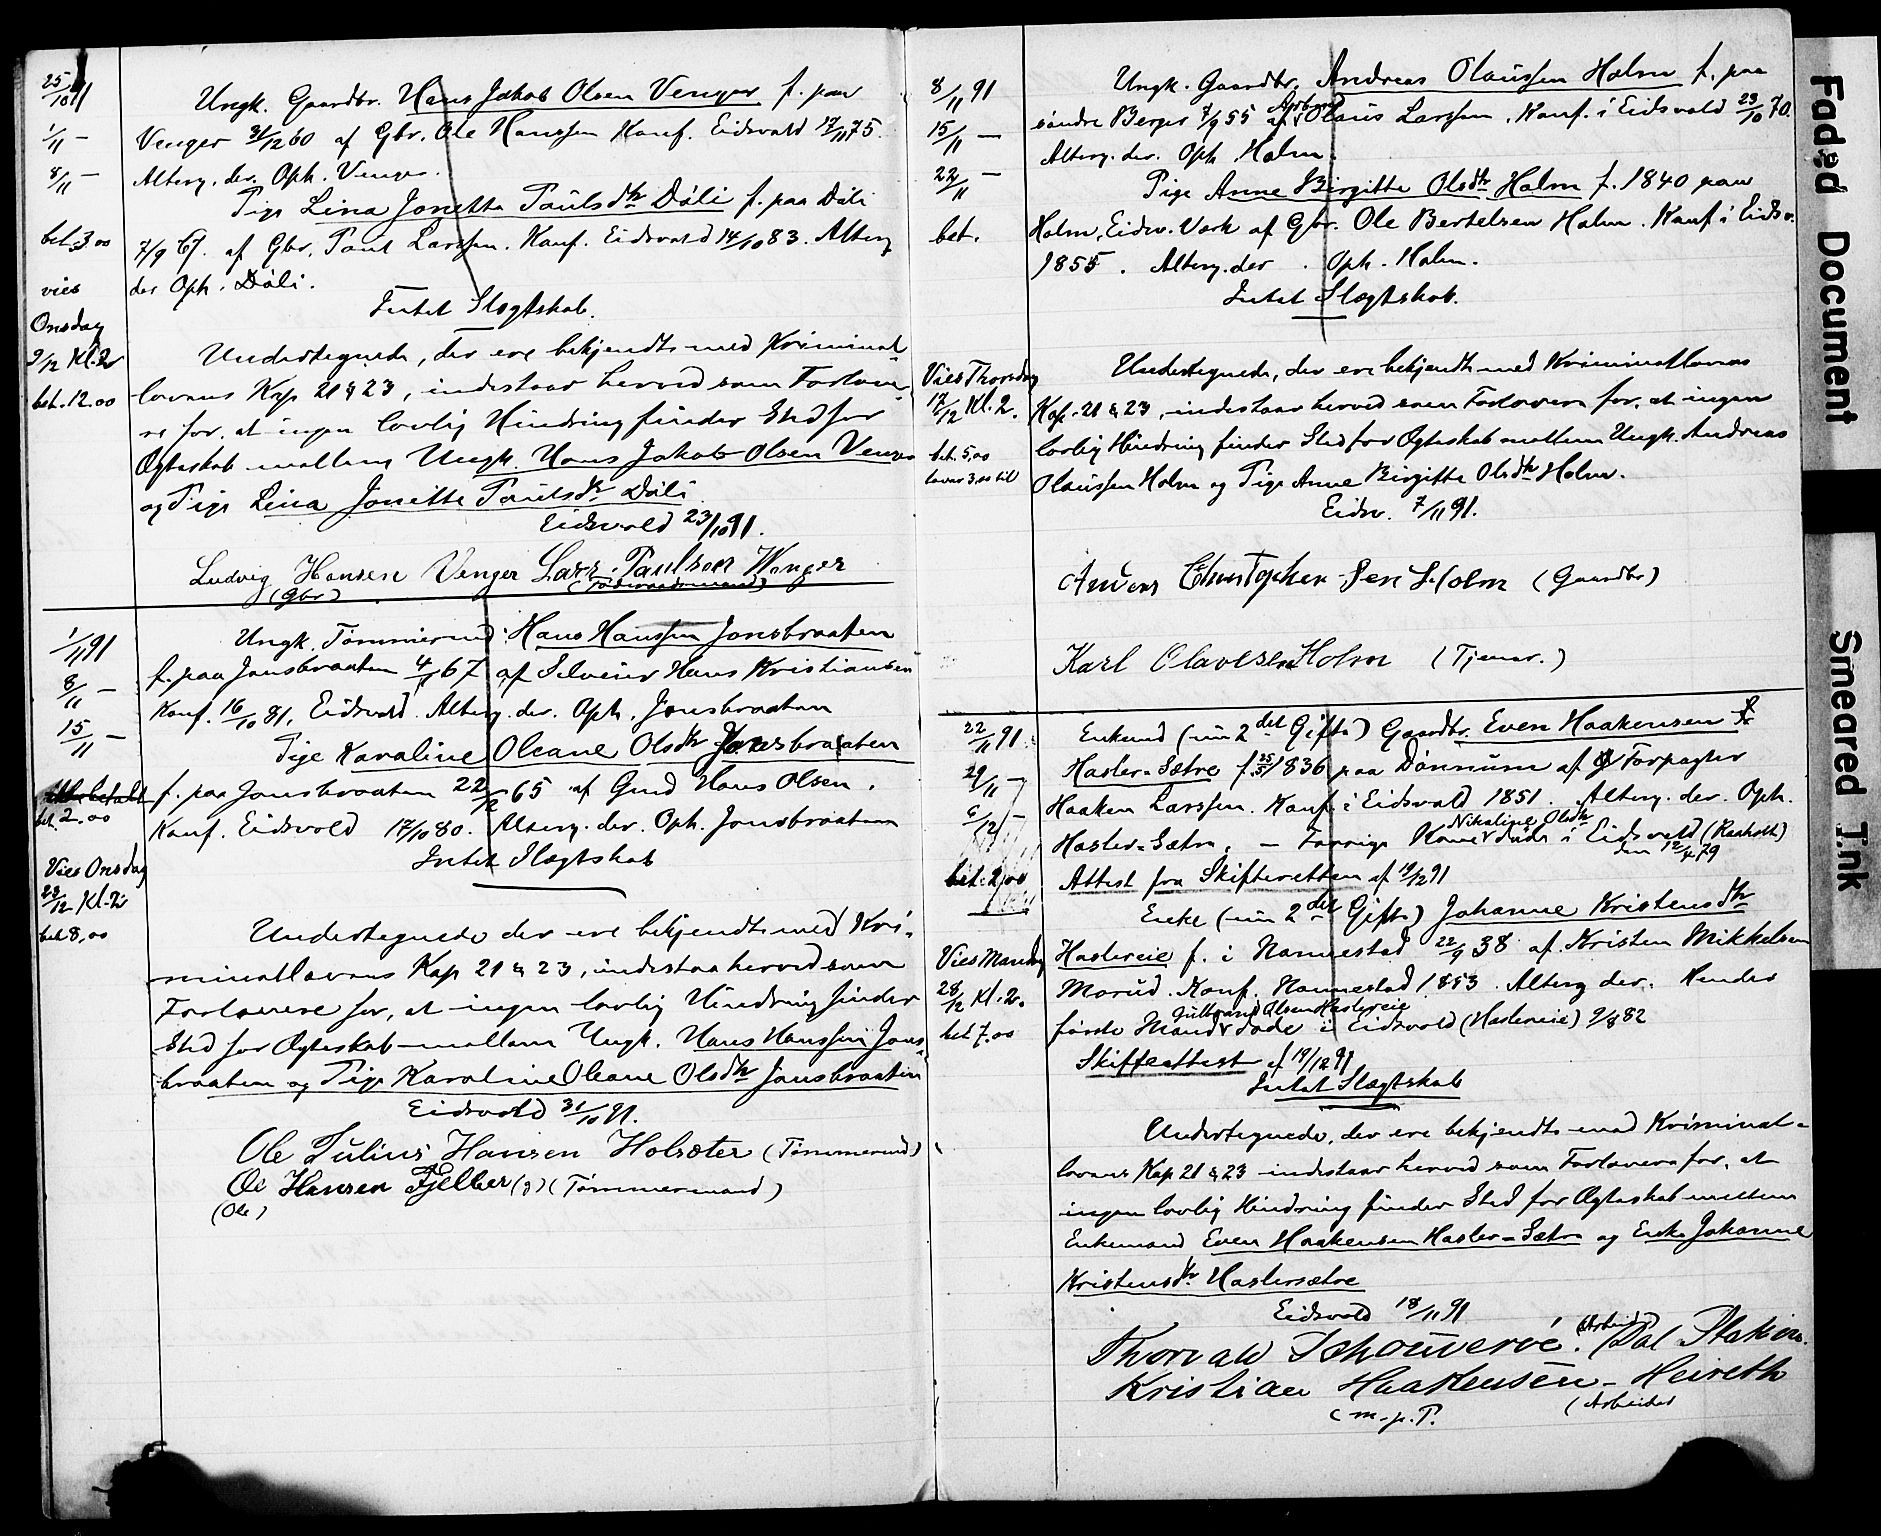 25/10 91
1/11 –
8/11 –
bet. 3.00
vies
Onsdag
9/12 Kl. 2
bet. 12.00
Ungk. Gaardbr. Hans Jakob Olsen Venger f. paa
Venger 31/12 60 af Gbr. Ole Hanssen Konf. Eidsvold 17/11 75.
Alterg. der. Oph. Venger.
Pige Lina Jonette Paulsdtr Døli f. paa Døli
7/9 67. af Gbr. Paul Larssen. Konf. Eidsvold 14/10 83. Alterg
der Oph. Døli.
Intet Slægtskab.
Undertegnede, der ere bekjendte med Kriminal-
lovens Kap 21 & 23, indestaar herved som Forlove-
re for, at ingen lovlig Hindring finder Sted for
Ægteskab mellem Ungk. Hans Jakob Olsen Venger
og Pige Lina Jonette Paulsdtr Døli
Eidsvold 23/10 91.
Ludvig Hansen Venger Lars Paulsen Wenger
(Gbr) (Føderaadsmand)
1/11 91
8/11 –
15/11 –
bet. 2.00
Vies Onsdag
23/12 Kl. 2
bet 8,00
Ungk. Tømmermd. Hans Hanssen Jonsbraaten
f. paa Jonsbraaten 4/11 67 af Selveier Hans Kristiansen
Konf. 16/10 81, Eidsvold. Alterg. der. Oph. Jonsbraaten
Pige Karoline Oleane Olsdtr Jonsbraaten
f. paa Jonsbraaten 22/12 65 af Gmd Hans Olsen.
Konf. Eidsvold 17/10 80. Alterg. der. Oph. Jonsbraaten
Intet Slægtskab
Undertegnede der ere bekjendte med Kri-
minallovens Kap 21 & 23, indestaa herved som
Forlovere for, at ingen lovlig Hindring finder
Sted for Ægteskab mellem Ungk. Hans Hanssen Jons-
braaten og Pige Karoline Oleane Olsdtr Jonsbraaten
Eidsvold 31/10 91.
Ole Julius Hansen Holsæter (Tømmermd)
Ole Hansen Fjelber (g) (Tømmermand)
(Ole)
8/11 91
15/11 –
22/11 –
bet.
Vies Thorsdag
17/12 Kl. 2.
bet. 5,00
lover 3,00 til
Ungk. Gaardbr. Andreas Olaussen Holm f. paa
søndre Berger 7/9 55 af Olaus Larssen. Konf. i Eidsvold 23/10 70.
Alterg. der. Oph Holm.
Pige Anne Birgitte Olsdtr Holm f. 1840 paa
Holm, Eidsv. Værk af Gbr. Ole Bertelsen Holm. Konf. i Eidsv.
1855. Alterg. der. Oph. Holm.
Intet Slægtskab.
Undertegnede, der ere bekjendte med Kriminallovens
Kap. 21 & 23, indestaar herved som Forlovere for, at ingen
lovlig Hindring finder Sted for Ægteskab mellem Ungk. Andreas
Olaussen Holm og Pige Anne Birgitte Olsdtr Holm.
Eidsv. 7/11 91.
Anders Christophersen Holm (Gaardbr)
Karl Olavesen Holm (Tjener.)
22/11 91
29/11 –
6/12 –
bet. 2,00
Vies Mandag
28/12 Kl. 2.
bet 7.00
Enkemd (nu 2det Gifte) Gaardbr. Even Haakensen
Hasler-Sætre f. 25/5 1836 paa Dønnum af Forpagter
Haaken Larssen. Konf. i Eidsvold 1851. Alterg. der. Oph.
Nikoline Olsdtr
Hasler-Sætre. – Forrige Kone døde i Eidsvold (Raaholt)
den 12/4 79
Attest fra Skifteretten af 19/12 91
Enke (nu 2det Gifte) Johanne Kristensdtr
Haslereie f. i Nannestad 22/9 38 af Kristen Mikkelsen
Morud. Konf. Nannestad 1853. Alterg der. Hendes
Gulbrand Olsen Haslereie
første Mand døde i Eidsvold (Haslereie) 9/8 82
Skifteattest af 19/12 91
Intet Slægtskab
Undertegnede, der ere bekjendte med Kriminal-
lovens Kap 21 & 23 indestaar herved som Forlovere for, at
ingen lovlig Hindring finder Sted for Ægteskab mellem
Enkemand Even Haakensen Hasler-Sætre og Enke Johanne
Kristensdtr. Haslersætre
Eidsvold 18/11 91
Thorvald (Arbeid) Dal
Kristian Haakensen
(m.p.P. (Arbeider
Faded Document
Smeared Ink